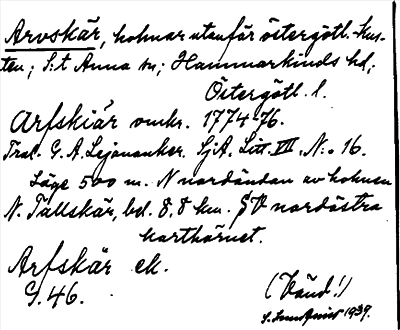 Arvskär, holmar utanför östergötl. kus-
ten; S:t Anna sn; Hammarkinds hd;
Östergötl. l.
Arfskiär omkr. 1774-76.
Trol. G. A. Lejonanker. SjA. Litt. VII. N:o 16.
Läge 500 m. N nordändan av holmen
N. Tallskär, bel. 8,8 km. SV nordöstra
karthörnet.
Arfskär ek.
G. 46.
(Vänd!)
1939.